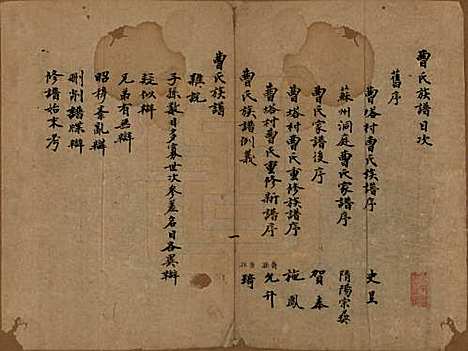 曹氏族譜目次
舊序
曹塔村曹氏族譜序 史呈
蘇州洞庭曹氏家譜序 隋陽宗
曹氏家譜後序 賀泰
曹塔村曹氏重修族譜序 施鳳
曹塔村曹氏重修新譜序 允升
曹氏族譜例義 琦
一
曹氏族譜
雜說
子孫數目多寡世次參差名目各異辯
疑似辯
兄弟有無辯
昭穆紊亂辯
刪削譜牒辯
修譜始末考